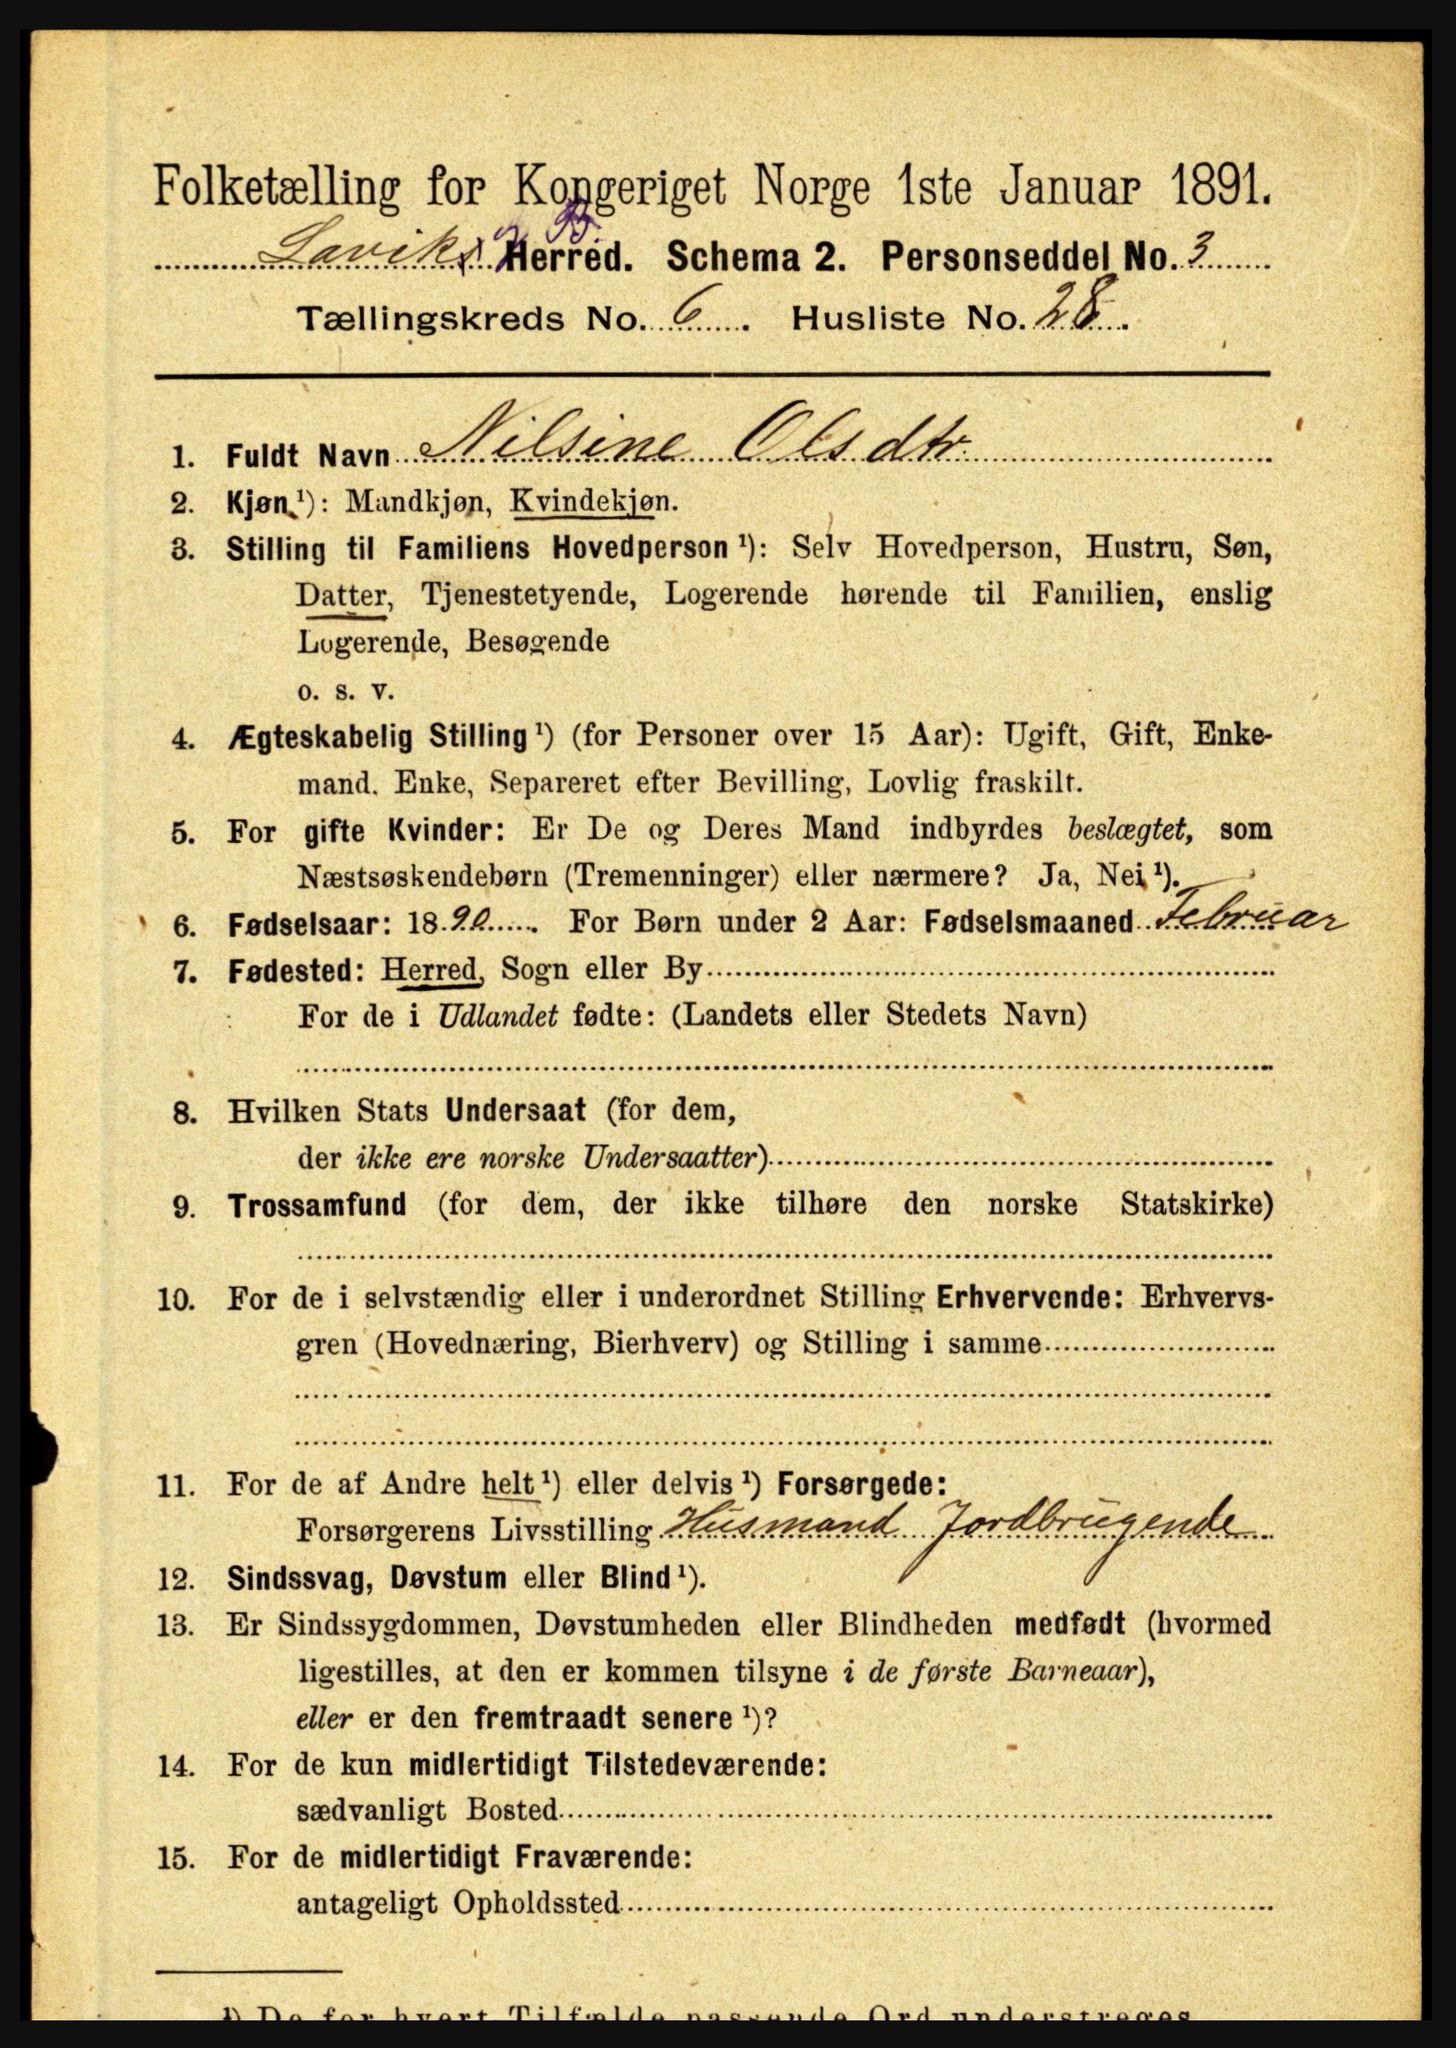 Folketælling for Kongeriget Norge 1ste Januar 1891.
Laviks og B. Herred. Schema 2. Personseddel No. 3
Tællingskreds No. 6. Husliste No. 28.
1. Fuldt Navn Nilsine Olsdtr.
2. Kjøn ¹): Mandkjøn, Kvindekjøn.
3. Stilling til Familiens Hovedperson ¹): Selv Hovedperson, Hustru, Søn,
Datter, Tjenestetyende, Logerende hørende til Familien, enslig
Logerende, Besøgende
o. s. v.
4. Ægteskabelig Stilling ¹) (for Personer over 15 Aar): Ugift, Gift, Enke-
mand. Enke, Separeret efter Bevilling, Lovlig fraskilt.
5. For gifte Kvinder: Er De og Deres Mand indbyrdes beslægtet, som
Næstsøskendebørn (Tremenninger) eller nærmere? Ja, Nei ¹).
6. Fødselsaar: 1890. For Børn under 2 Aar: Fødselsmaaned Februar
7. Fødested: Herred, Sogn eller By
For de i Udlandet fødte: (Landets eller Stedets Navn)
8. Hvilken Stats Undersaat (for dem,
der ikke ere norske Undersaatter)
9. Trossamfund (for dem, der ikke tilhøre den norske Statskirke)
10. For de i selvstændig eller i underordnet Stilling Erhvervende: Erhvervs-
gren (Hovednæring, Bierhverv) og Stilling i samme
11. For de af Andre helt ¹) eller delvis ¹) Forsørgede:
Forsørgerens Livsstilling Husmand Jordbrugende
12. Sindssvag, Døvstum eller Blind ¹).
13. Er Sindssygdommen, Døvstumheden eller Blindheden medfødt (hvormed
ligestilles, at den er kommen tilsyne i de første Barneaar),
eller er den fremtraadt senere ¹)?
14. For de kun midlertidigt Tilstedeværende:
sædvanligt Bosted
15. For de midlertidigt Fraværende:
antageligt Opholdssted
¹) De for hvert Tilfælde passende Ord understreges